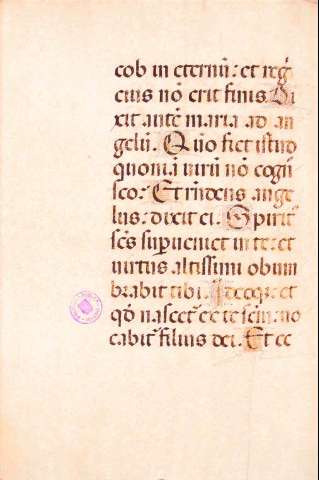 cob in eternū: et regͥ
eius nō erit finis. Di
xit autē maria ad an
gelū. Quo fiet istud
quoniā uirū nō cogn̄
sco: Et rn̄dens ange
lus: dixit ei. Spirit᷒
scs̄ supueniet in te: et
uirtus altissimi obum
brabit tibi. Ideoqʒ et
qd̄ nascet᷒ ex te scm̄: uo
cabit᷒ filius dei. Et ec